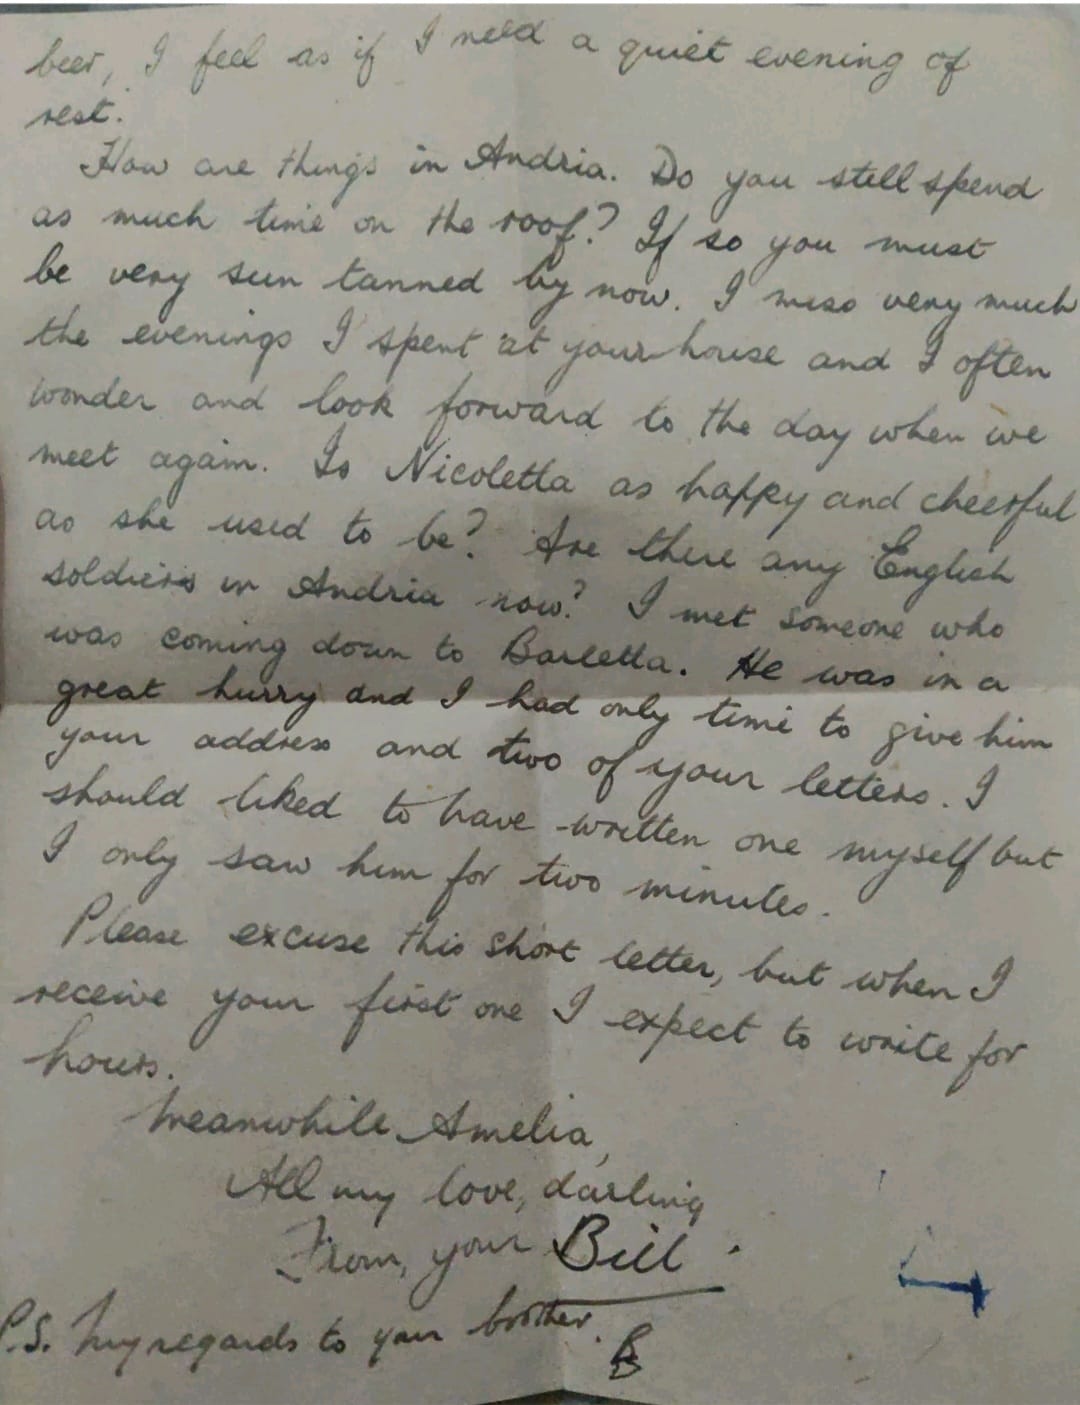 beer, I feel as if I need a quiet evening of
rest.
How are things in Andria. Do you still spend
as much time on the roof? If so you must
be very sun tanned by now. I miss very much
the evenings I spent at your house and I often
wonder and look forward to the day when we
meet again. Is Nicoletta as happy and cheerful
as she used to be? Are there any English
soldiers in Andria now? I met someone who
was coming down to Barletta. He was in a
great hurry and I had only time to give him
your address and two of your letters. I
should liked to have written one myself but
I only saw him for two minutes.
Please excuse this short letter, but when I
receive your first one I expect to write for
hours.
Meanwhile Amelia,
All my love, darling
From, your Bill.
P.S. My regards to your brother.
B